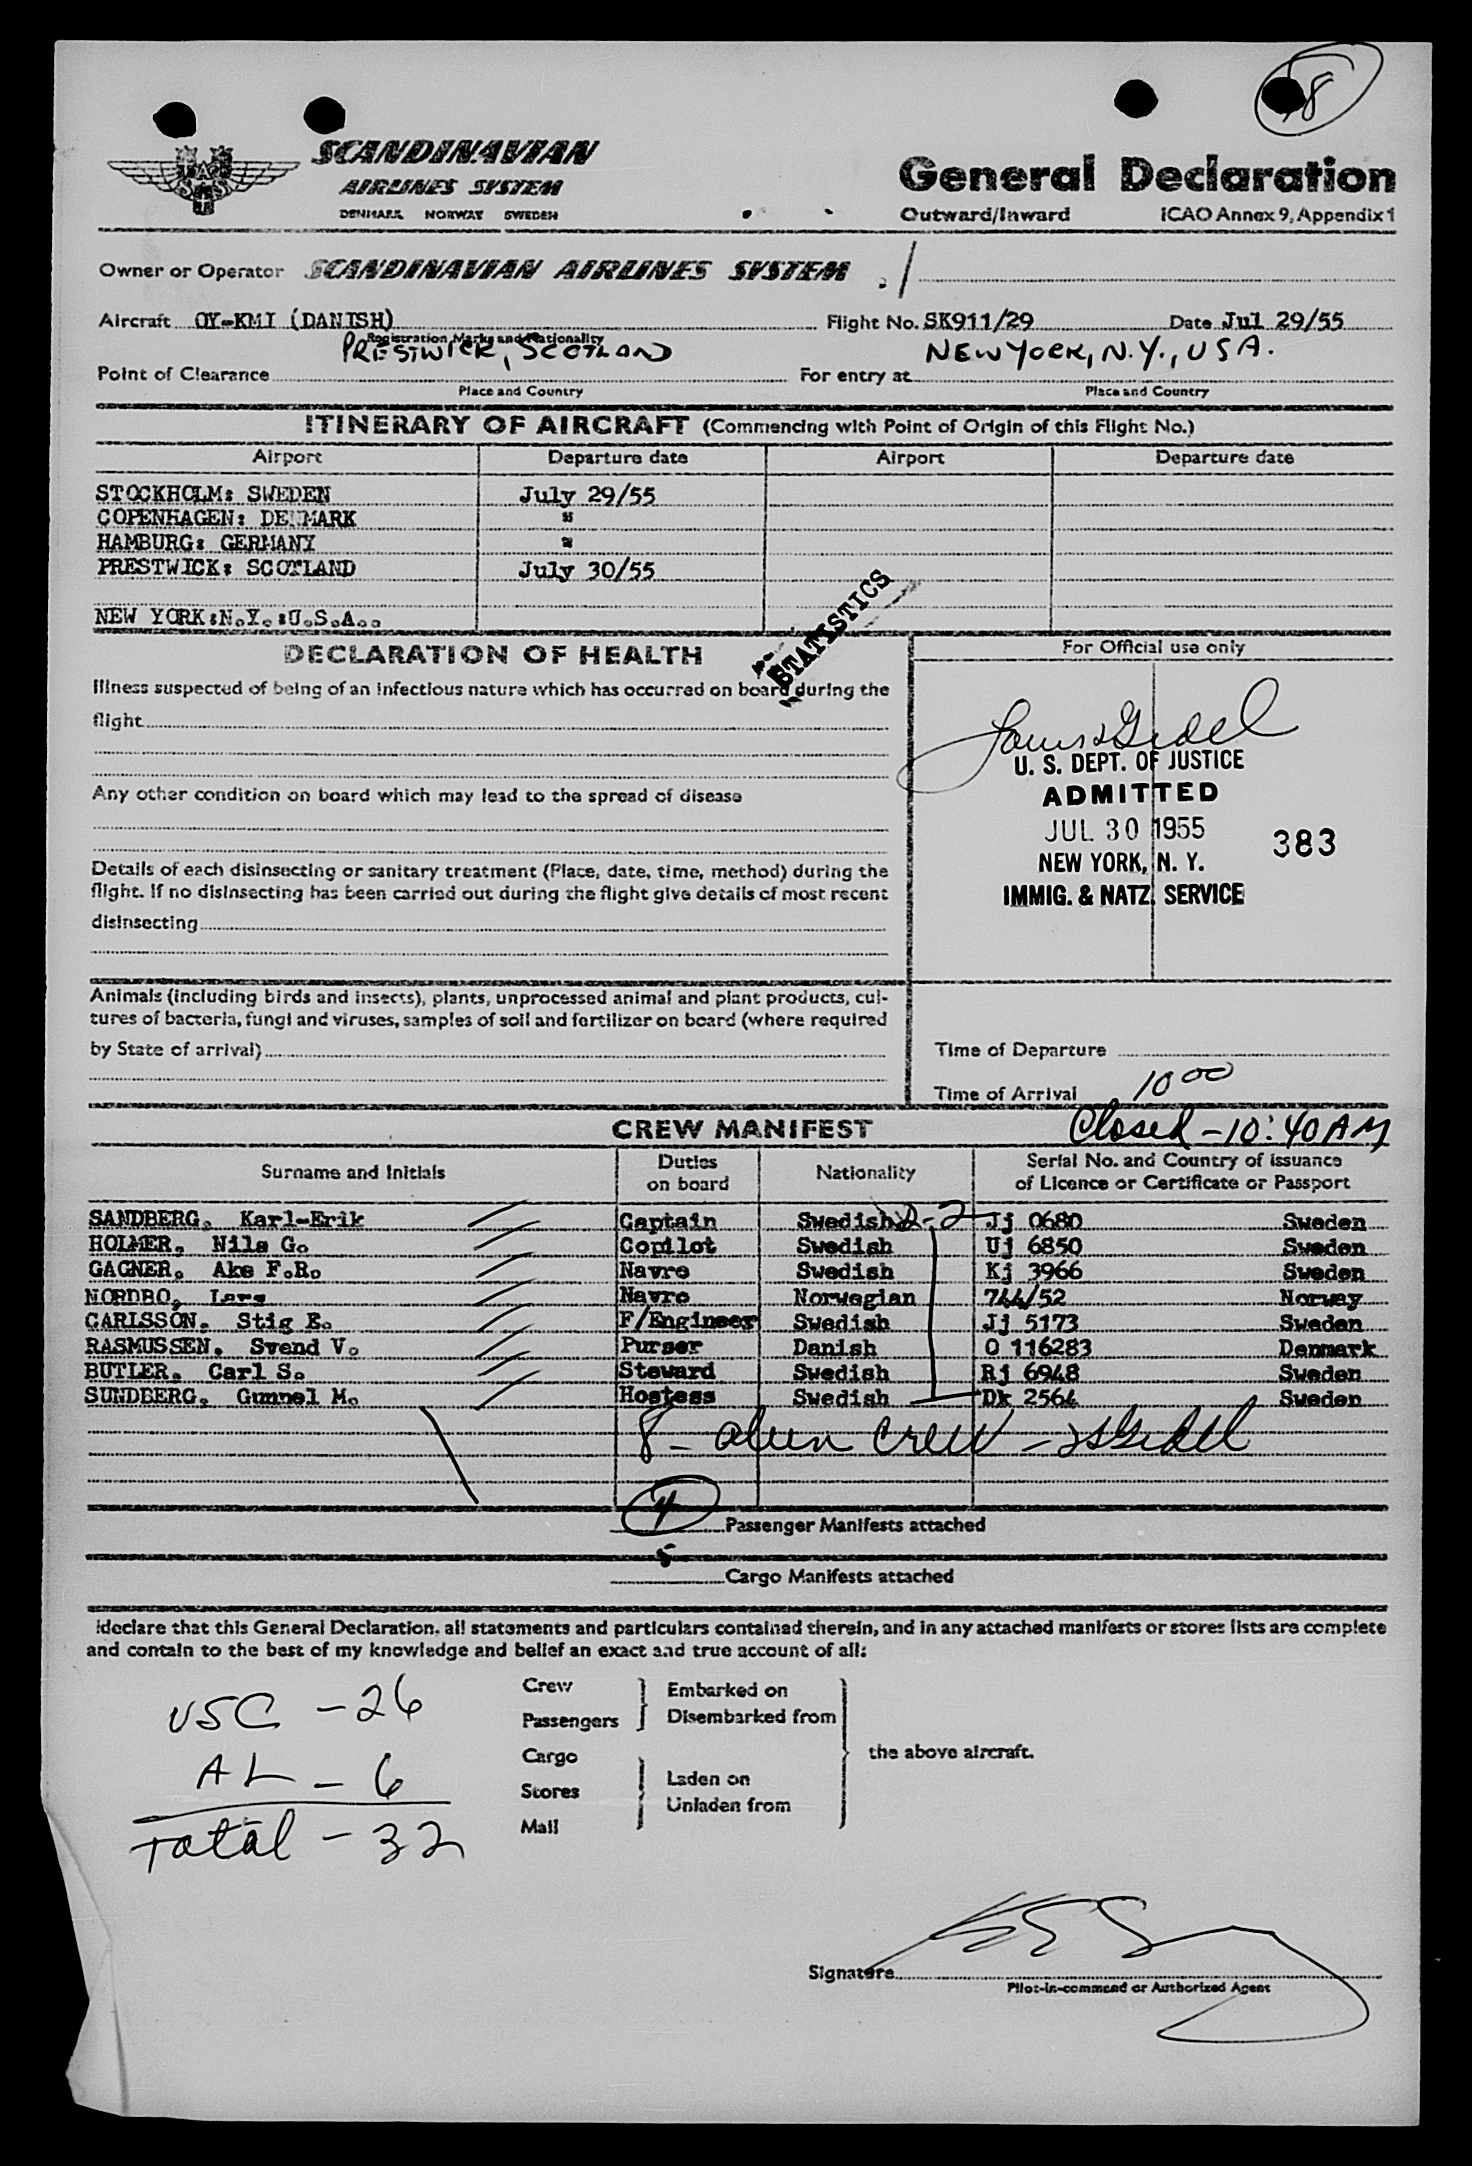 18
SCANDINAVIAN
AIRLINES SYSTEM
DENMARK NORWAY SWEDEN
General Declaration
Outward/Inward ICAO Annex 9, Appendix 1
Owner or Operator SCANDINAVIAN AIRLINES SYSTEM
Aircraft OY-KMI (DANISH) Flight No. SK911/29 Date Jul 29/55
Registration Marks and Nationality
PRESTWICK, SCOTLAND NEW YORK, N.Y., USA.
Point of Clearance For entry at
Place and Country Place and Country
ITINERARY OF AIRCRAFT (Commencing with Point of Origin of this Flight No.)
Airport Departure date Airport Departure date
STOCKHOLM: SWEDEN July 29/55
COPENHAGEN: DENMARK "
HAMBURG: GERMANY "
PRESTWICK: SCOTLAND July 30/55
NEW YORK:N.Y.:U.S.A..
STATISTICS
DECLARATION OF HEALTH
For Official use only
Illness suspected of being of an infectious nature which has occurred on board during the
flight
Any other condition on board which may lead to the spread of disease
Details of each disinsecting or sanitary treatment (Place, date, time, method) during the
flight. If no disinsecting has been carried out during the flight give details of most recent
disinsecting
U. S. DEPT. OF JUSTICE
ADMITTED
JUL 30 1955
383
NEW YORK, N. Y.
IMMIG. & NATZ. SERVICE
Animals (including birds and insects), plants, unprocessed animal and plant products, cul-
tures of bacteria, fungi and viruses, samples of soil and fertilizer on board (where required
by State of arrival)
Time of Departure
Time of Arrival 10 00
Closed - 10:40 AM
CREW MANIFEST
Surname and Initials Duties on board Nationality Serial No. and Country of issuance
of Licence or Certificate or Passport
SANDBERG, Karl-Erik Captain Swedish D-2 Jj 0680 Sweden
HOLMER, Nils G. Copilot Swedish Uj 6850 Sweden
GAGNER, Ake F.R. Navro Swedish Kj 3966 Sweden
NORDBO, Lars Navro Norwegian 744/52 Norway
CARLSSON, Stig E. F/Engineer Swedish Jj 5173 Sweden
RASMUSSEN, Svend V. Purser Danish O 116283 Denmark
BUTLER, Carl S. Steward Swedish Rj 6948 Sweden
SUNDBERG, Gunnel M. Hostess Swedish Dk 2564 Sweden
8 - alien crew -
4
Passenger Manifests attached
5
Cargo Manifests attached
I declare that this General Declaration, all statements and particulars contained therein, and in any attached manifests or stores lists are complete
and contain to the best of my knowledge and belief an exact and true account of all:
Crew Embarked on
Passengers Disembarked from
Cargo the above aircraft.
Stores Laden on
Mail Unladen from
USC - 26
AL - 6
Total - 32
Signature
Pilot-in-command or Authorized Agent